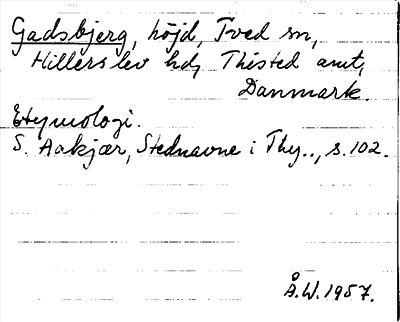 Gadsbjerg, höjd, Tved sn,
Hillerslev hd, Thisted amt,
Danmark.
Etymologi.
S. Aakjær, Stednavne i Thy.., s.102.
Å.W.1957.